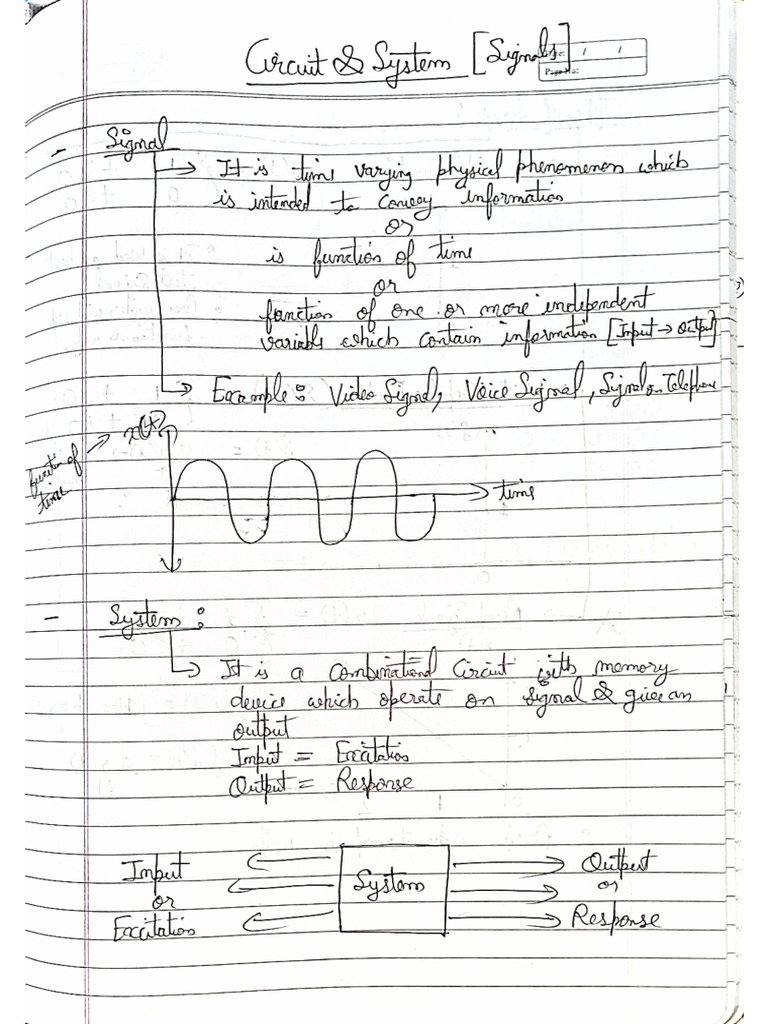 Circuit & System [Signals]
Page No:
- Signal
It is time varying physical phenomenon which
is intended to convey information
or
is function of time
or
function of one or more independent
variable which contain information [Input → Output]
Example: Video Signal, Voice Signal, Signal on Telephone
x(t)
function of
time
time
- System:
It is a combinational Circuit with memory
device which operate on signal & give an
output
Input = Excitation
Output = Response
Input
or
Excitation
System
Output
or
Response